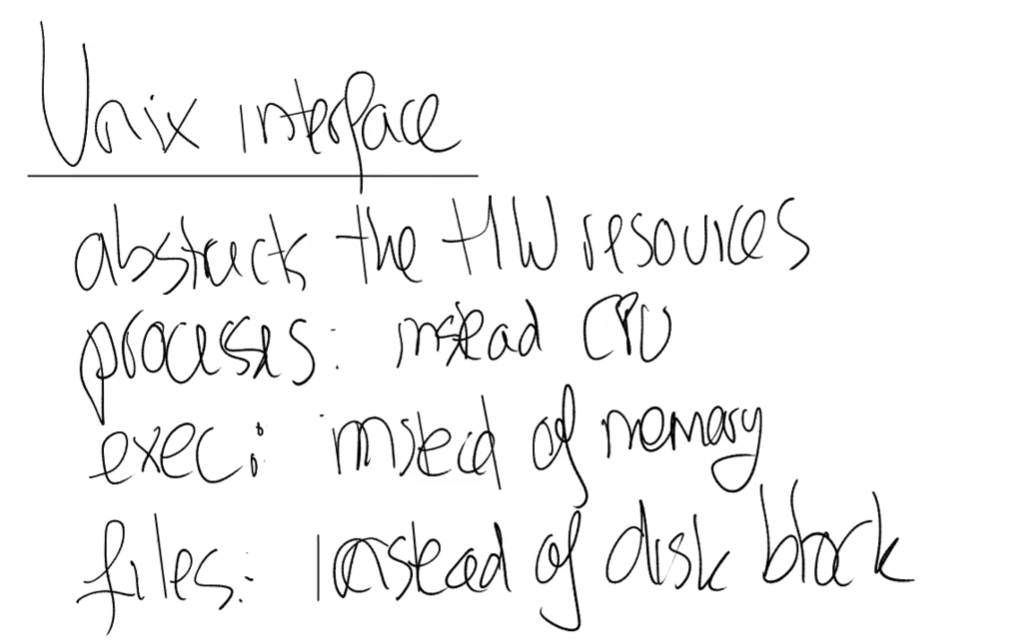 Unix interface
abstracts the HW resources
processes: instead CPU
exec: instead of memory
files: instead of disk block